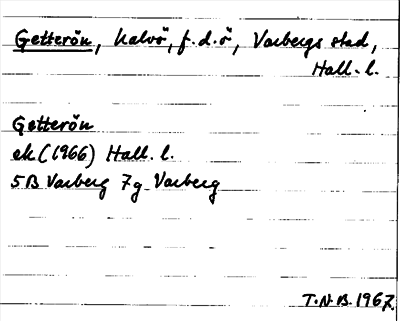 Getterön, halvö, f.d.ö, Varbergs stad,
Hall. l.
Getterön
ek (1966) Hall. l.
5B Varberg 7g Varberg
T.N.B. 1967.